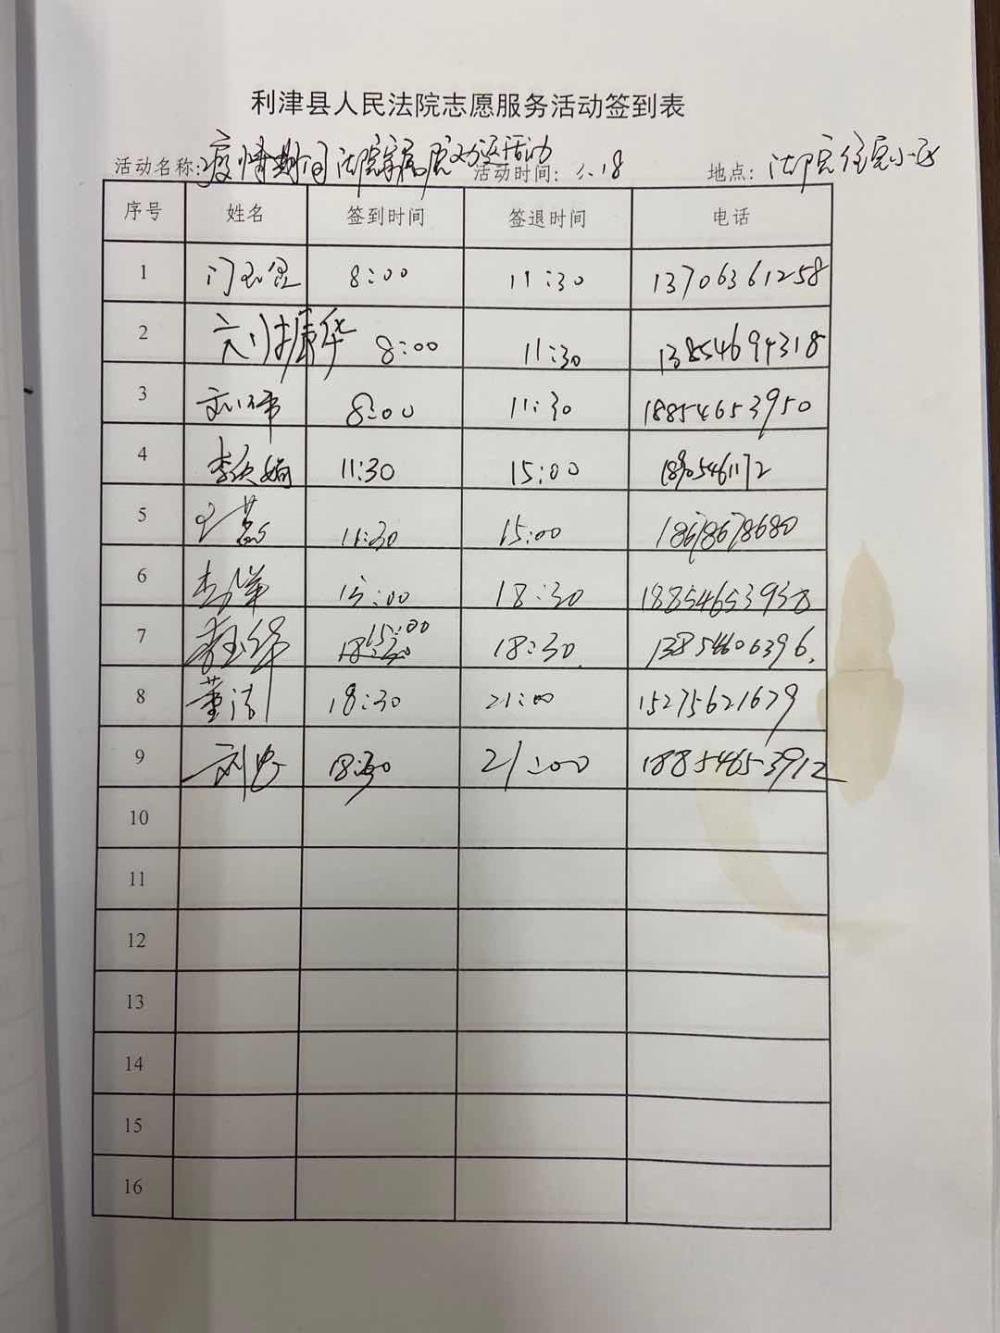 利津县人民法院志愿服务活动签到表
活动名称: 疫情期间法院家属院 活动 活动时间: 18 地点: 法院住宅小区
序号 姓名 签到时间 签退时间 电话
1 8:00 11:30 13706361258
2 刘振华 8:00 11:30 13854694318
3 刘伟 8:00 11:30 18854653950
4 11:30 15:00
5 王慧 11:30 15:00 18678678680
6 15:00 18:30 18854653938
7 15:00 18:30 13854606396.
8 董洁 18:30 21:00 15275621679
9 刘忠 18:30 21:00 18854653912
10
11
12
13
14
15
16